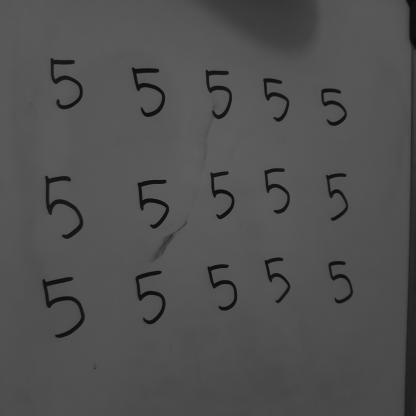 5 5 5 5 5
5 5 5 5 5
5 5 5 5 5